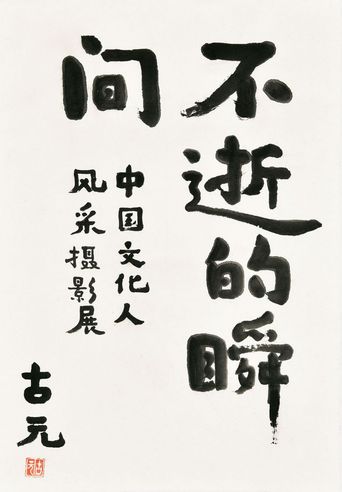 不逝的瞬
间
中国文化人
风采摄影展
古元